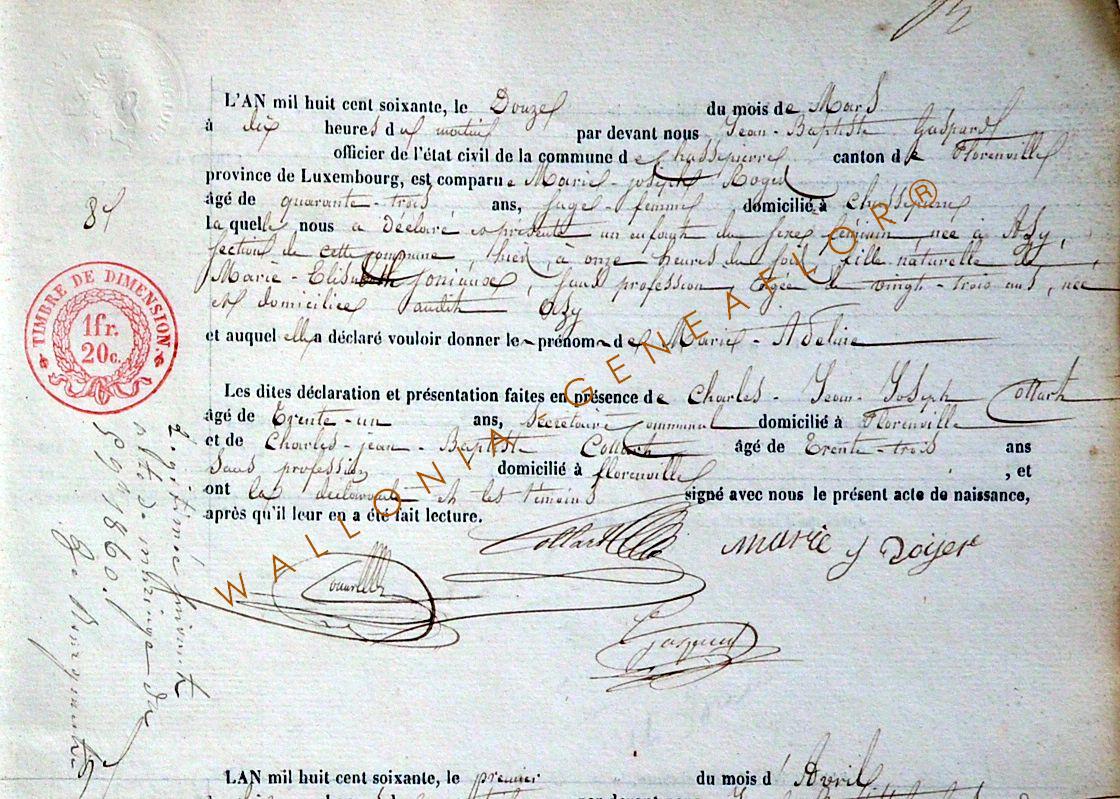 L'AN mil huit cent soixante, le Douze du mois de Mars
à dix heures du matin par devant nous Jean-Baptiste Gaspard
officier de l'état civil de la commune de Chassepierre canton de Florenville
province de Luxembourg, est comparue Marie-Joseph
âgé de quarante-trois ans, sage-femme domicilié à Chassepierre
laquelle nous a déclaré et présenté un enfant du sexe féminin née à Azy,
section de cette commune, hier, à onze heures du soir fille naturelle de
Marie-Elisabeth Joniaux, sans profession, âgée de vingt-trois ans, née
et domiciliée audit Azy
et auquel elle a déclaré vouloir donner le prénom de Marie-Adeline
Les dites déclaration et présentation faites en présence de Charles-Jean-Joseph Collart
âgé de Trente-un ans, secrétaire communal domicilié à Florenville
et de Charles-jean-Baptiste Collart âgé de Trente-trois ans
Sans profession domicilié à florenville, et
ont la déclarante et les témoins signé avec nous le présent acte de naissance,
après qu'il leur en a été fait lecture.
Collart
marie j
Gaspard
8
TIMBRE DE DIMENSION.
1fr.
20c.
Légitimée suivant
acte de mariage du
1860.
WALLONIA GENEAFLOR®
L'AN mil huit cent soixante, le premier du mois d'Avril